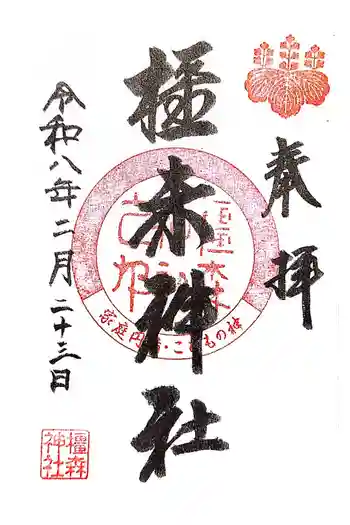 奉拝
橿森神社
令和八年二月二十三日
家庭円満・こどもの神
橿森神社